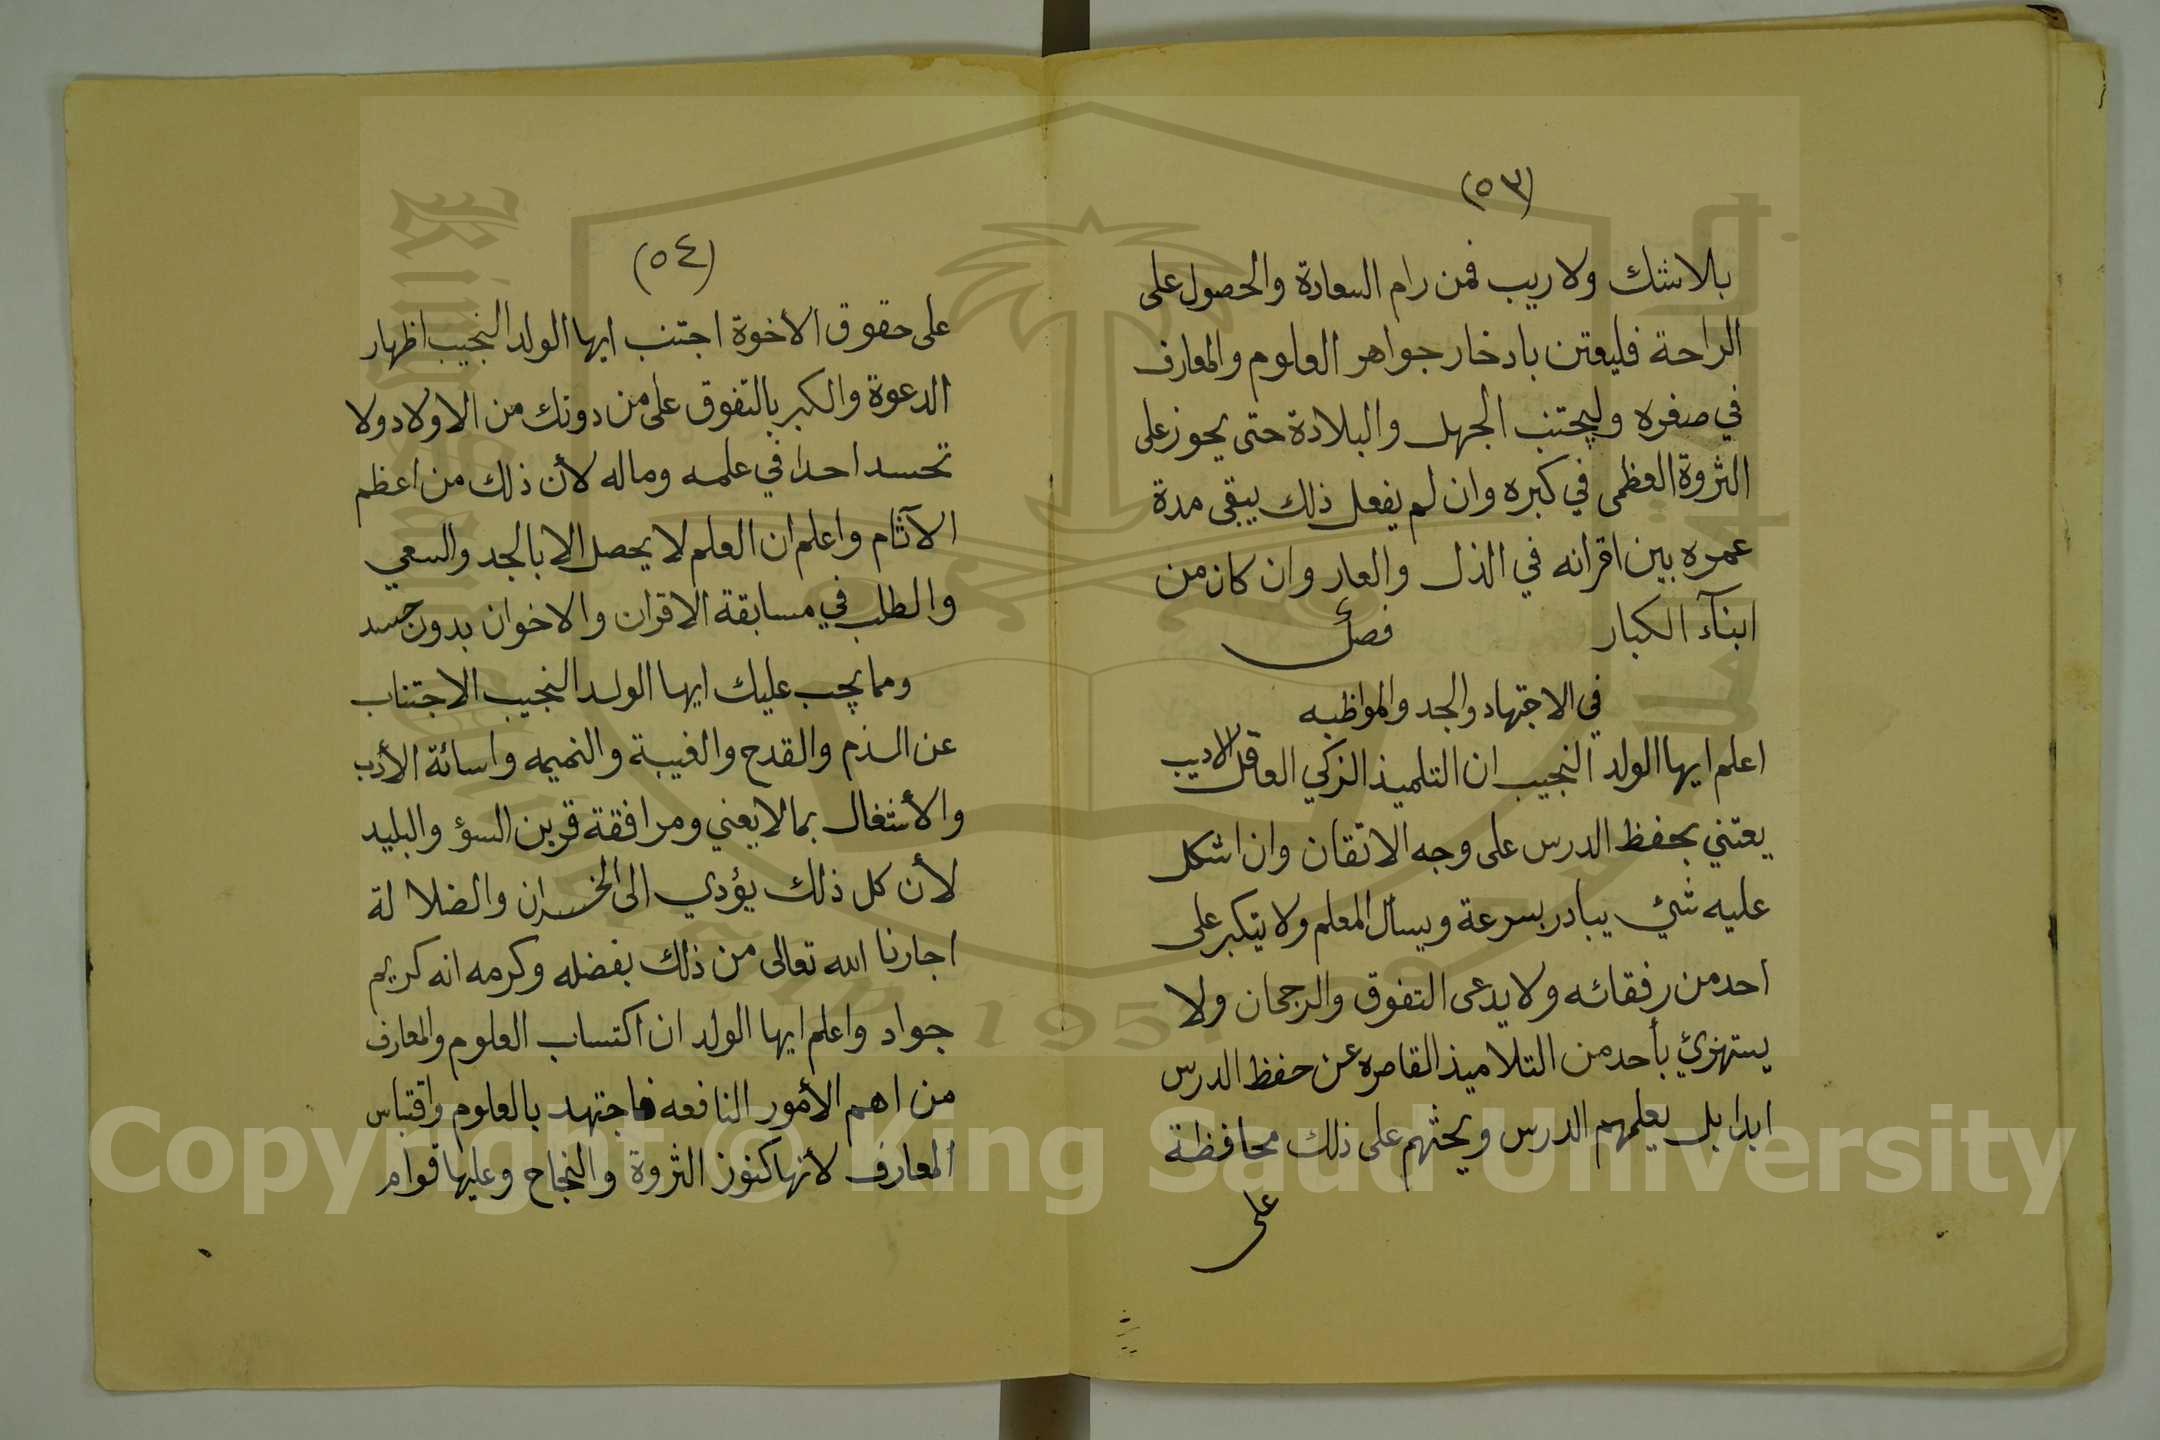 (٥٣)
بلا شك ولا ريب فمن رام السعادة والحصول على
الراحة فليعتن بادخار جواهر العلوم والمعارف
في صغره وليجتنب الجهل والبلادة حتى يحوز على
الثروة العظمى في كبره وان لم يفعل ذلك يبقى مدة
عمره بين اقرانه في الذل والعار وان كان من
ابنآء الكبار فصل
في الاجتهاد والجد والمواظبه
اعلم ايها الولد النجيب ان التلميذ الزكي العاقل الاديب
يعتني بحفظ الدرس على وجه الاتقان وان اشكل
عليه شئ يبادر بسرعة ويسأل المعلم ولا يتكبر على
احد من رفقائه ولا يدعى التفوق والرجحان ولا
يستهزئ بأحد من التلاميذ القاصره عن حفظ الدرس
ابدا بل يعلمهم الدرس ويحثهم على ذلك محافظة
على
(٥٤)
على حقوق الاخوة اجتنب ايها الولد النجيب اظهار
الدعوة والكبر بالتفوق على من دونك من الاولاد ولا
تحسد احدا في علمه وماله لأن ذلك من اعظم
الآثام واعلم ان العلم لا يحصل الا بالجد والسعي
والطلب في مسابقة الاقران والاخوان بدون حسد
ومما يجب عليك ايها الولد النجيب الاجتناب
عن الذم والقدح والغيبة والنميمه واسائة الأدب
والأشغال بما لا يعني ومرافقة قرين السؤ والبليد
لأن كل ذلك يؤدي الى الخسران والضلالة
اجارنا الله تعالى من ذلك بفضله وكرمه انه كريم
جواد واعلم ايها الولد ان اكتساب العلوم والمعارف
من اهم الأمور النافعه فاجتهد بالعلوم واقتباس
المعارف لأنها كنوز الثروة والنجاح وعليها قوام
Copyright © King Saud University
1957